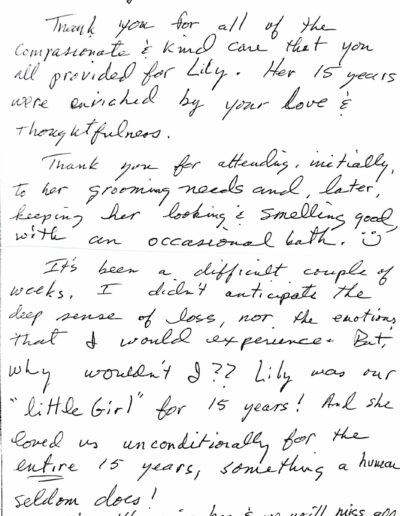 Thank you for all of the
compassionate & kind care that you
all provided for Lily. Her 15 years
were enriched by your love &
thoughtfulness.
Thank you for attending, initially,
to her grooming needs and, later,
keeping her looking & smelling good,
with an occasional bath.
It's been a difficult couple of
weeks. I didn't anticipate the
deep sense of loss, nor the emotions
that I would experience. But,
why wouldn't I?? Lily was our
"little Girl" for 15 years! And she
loved us unconditionally for the
entire 15 years, something a human
seldom does!
her & we'll miss